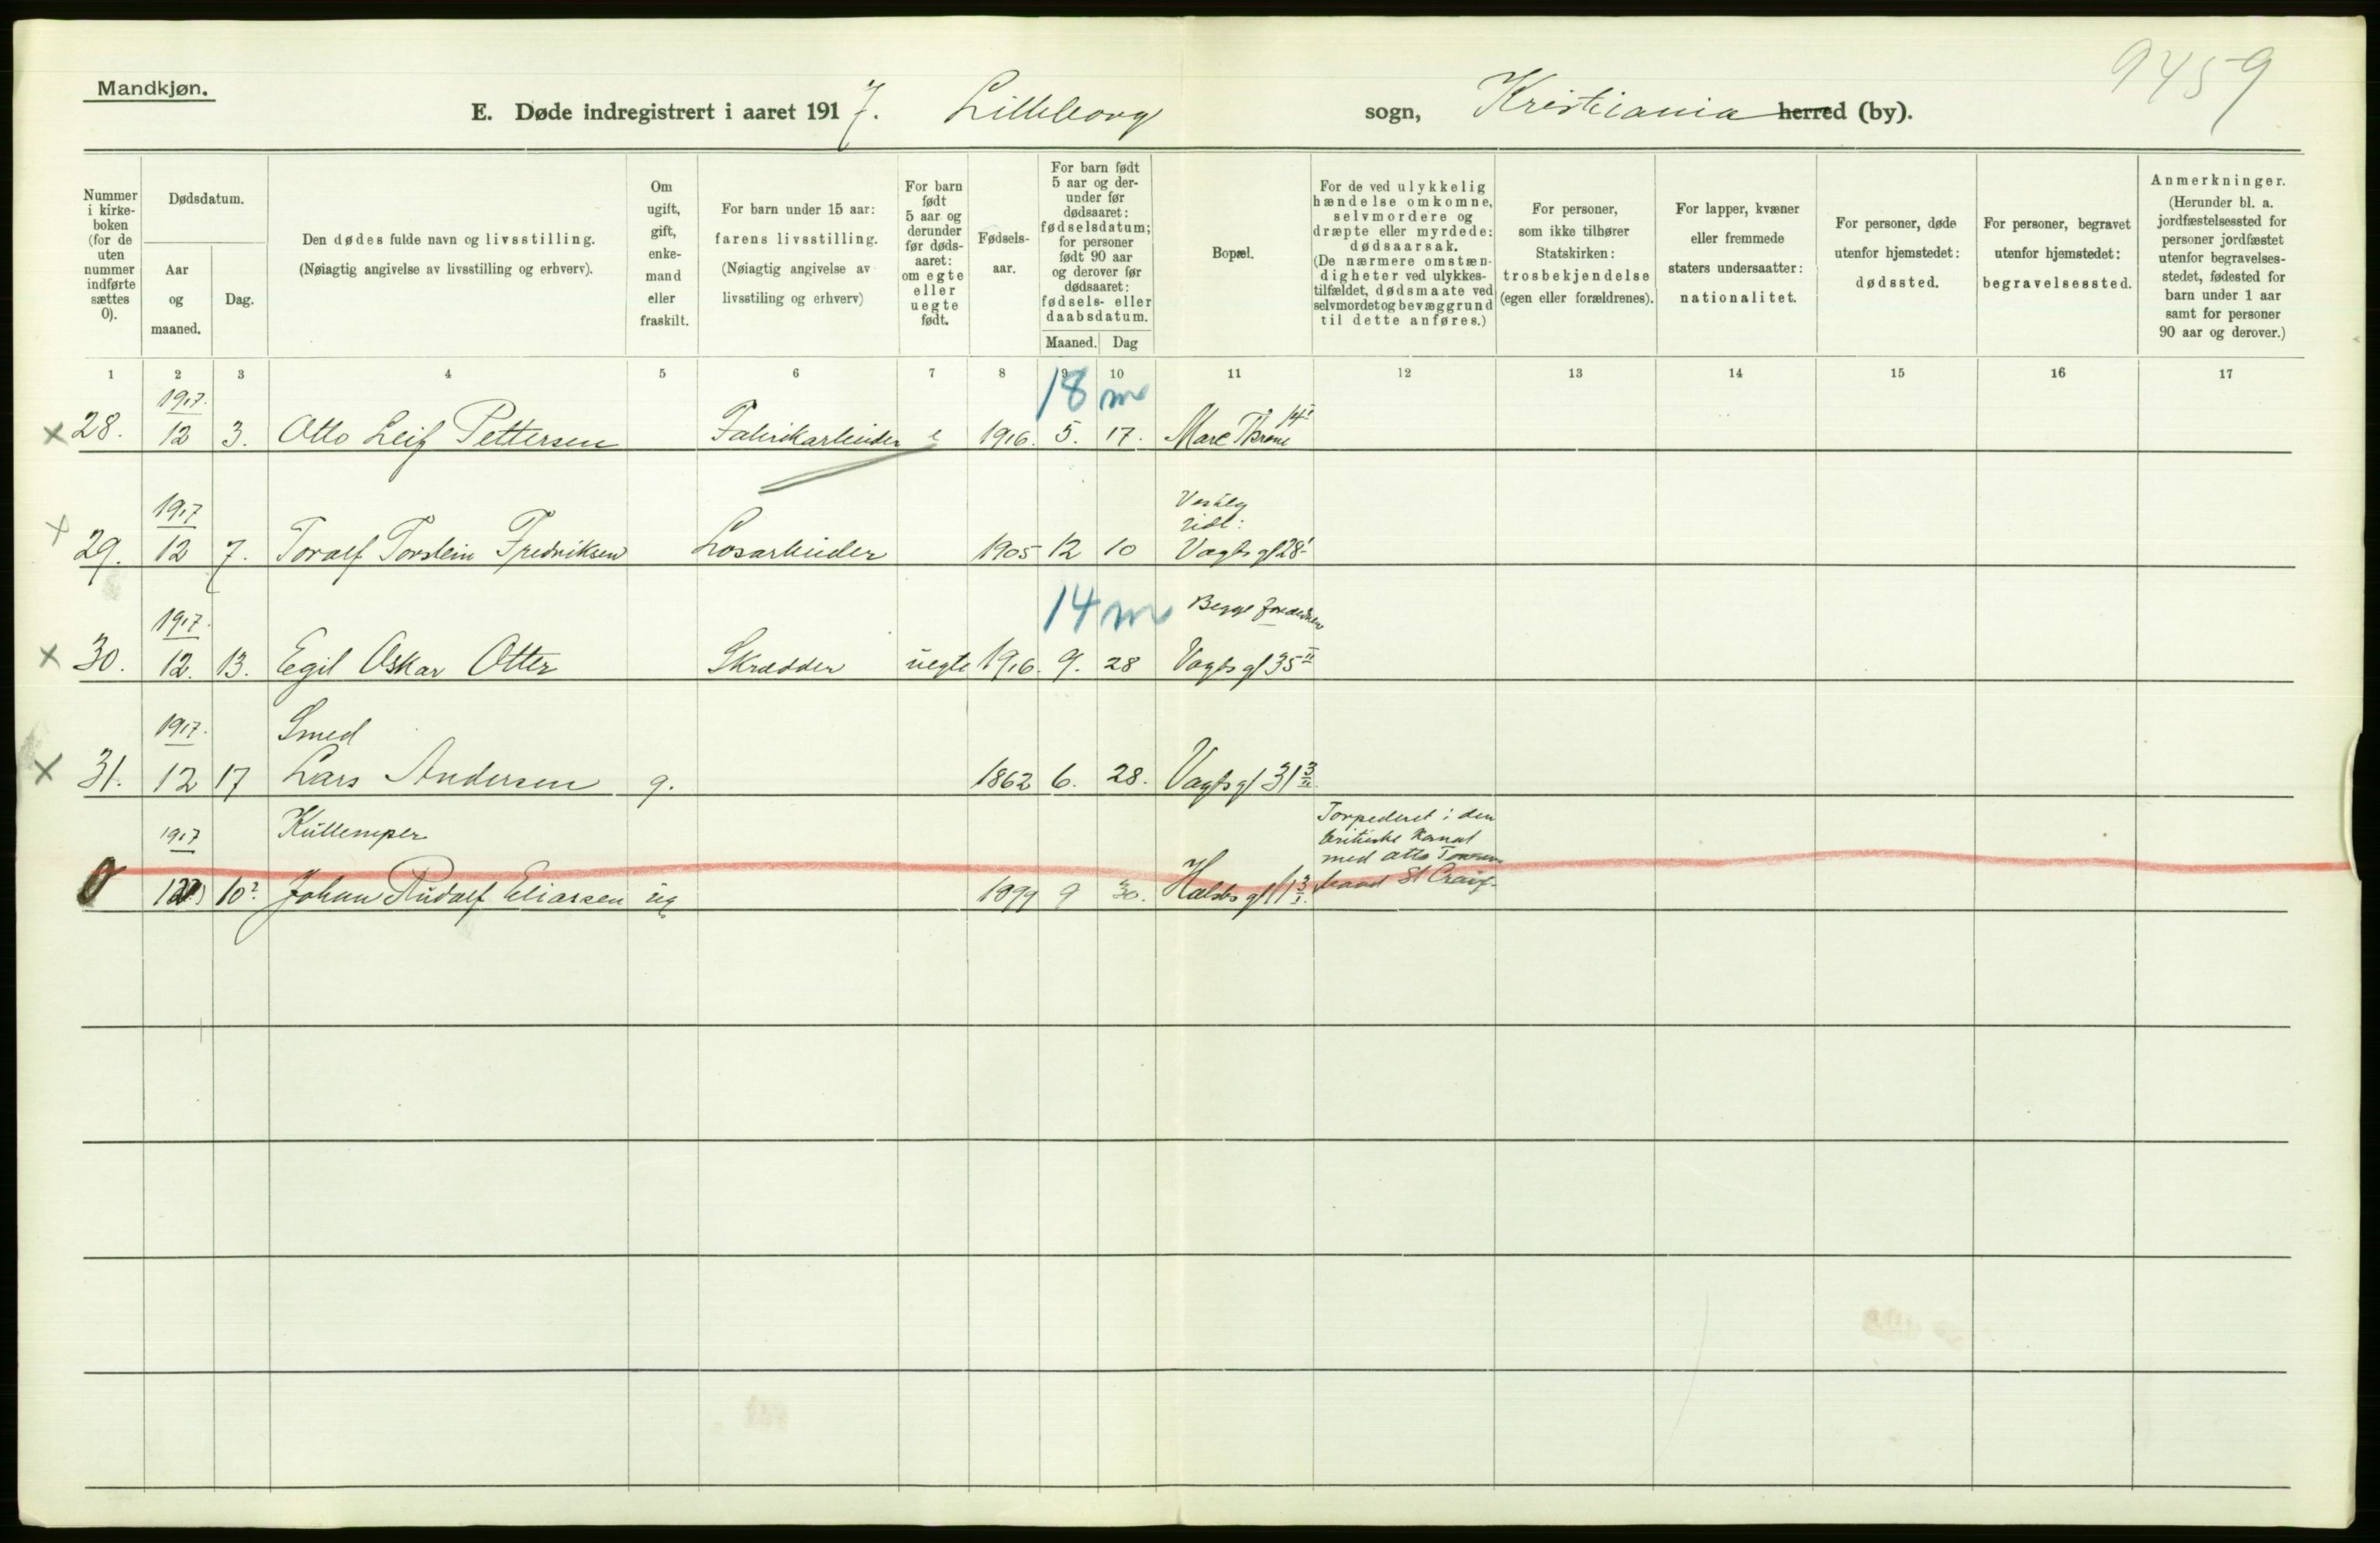 Mandkjøn.
9459
E. Døde indregistrert i aaret 1917. Lilleborg sogn, Kristiania herred (by).
Nummer i kirke-boken (for de uten nummer indførte sættes 0).
Dødsdatum.
Aar og maaned.
Dag.
Den dødes fulde navn og livsstilling.
(Nøiagtig angivelse av livsstilling og erhverv).
Om ugift, gift, enke-mand eller fraskilt.
For barn under 15 aar:
farens livsstilling.
(Nøiagtig angivelse av livsstiling og erhverv)
For barn født 5 aar og derunder før døds-aaret: om egte eller uegte født.
Fødsels-aar.
For barn født 5 aar og der-under før dødsaaret: fødselsdatum; for personer født 90 aar og derover før dødsaaret: fødsels- eller daabsdatum.
Maaned. Dag
Bopæl.
For de ved ulykkelig hændelse omkomne, selvmordere og dræpte eller myrdede: dødsaarsak.
(De nærmere omstæn-digheter ved ulykkes-tilfældet, dødsmaate ved selvmordet og bevæggrund til dette anføres.)
For personer, som ikke tilhører Statskirken: trosbekjendelse (egen eller forældrenes).
For lapper, kvæner eller fremmede staters undersaatter: nationalitet.
For personer, døde utenfor hjemstedet: dødssted.
For personer, begravet utenfor hjemstedet: begravelsessted.
Anmerkninger.
(Herunder bl. a. jordfæstelsessted for personer jordfæstet utenfor begravelses-stedet, fødested for barn under 1 aar samt for personer 90 aar og derover.)
1 2 3 4 5 6 7 8 9 10 11 12 13 14 15 16 17
1917. 18 m
x 28. 12 3. Otto Leif Pettersen Fabrikarbeider e 1916. 5. 17. Marc Thrane 14 I
1917
x 29. 12 7. Toralf Torstein Fredriksen Losarbeider 1905 12 10 Vogts gt 28 I
1917. 14 m Begge forældrene
x 30. 12. 13. Egil Oskar Otter Skrædder uegte 1916. 9. 28 Vogts gt 35 II
1917. Smed
x 31. 12 17 Lars Andersen g. 1862 6. 28. Vogts gt 31 3 II
1917 Kullemper Torpederet i den
britiske kanal
med Otto
0 12 10? Johan Rudolf Eliassen ug 1899 9 30. gt 11 3 I. St Craig